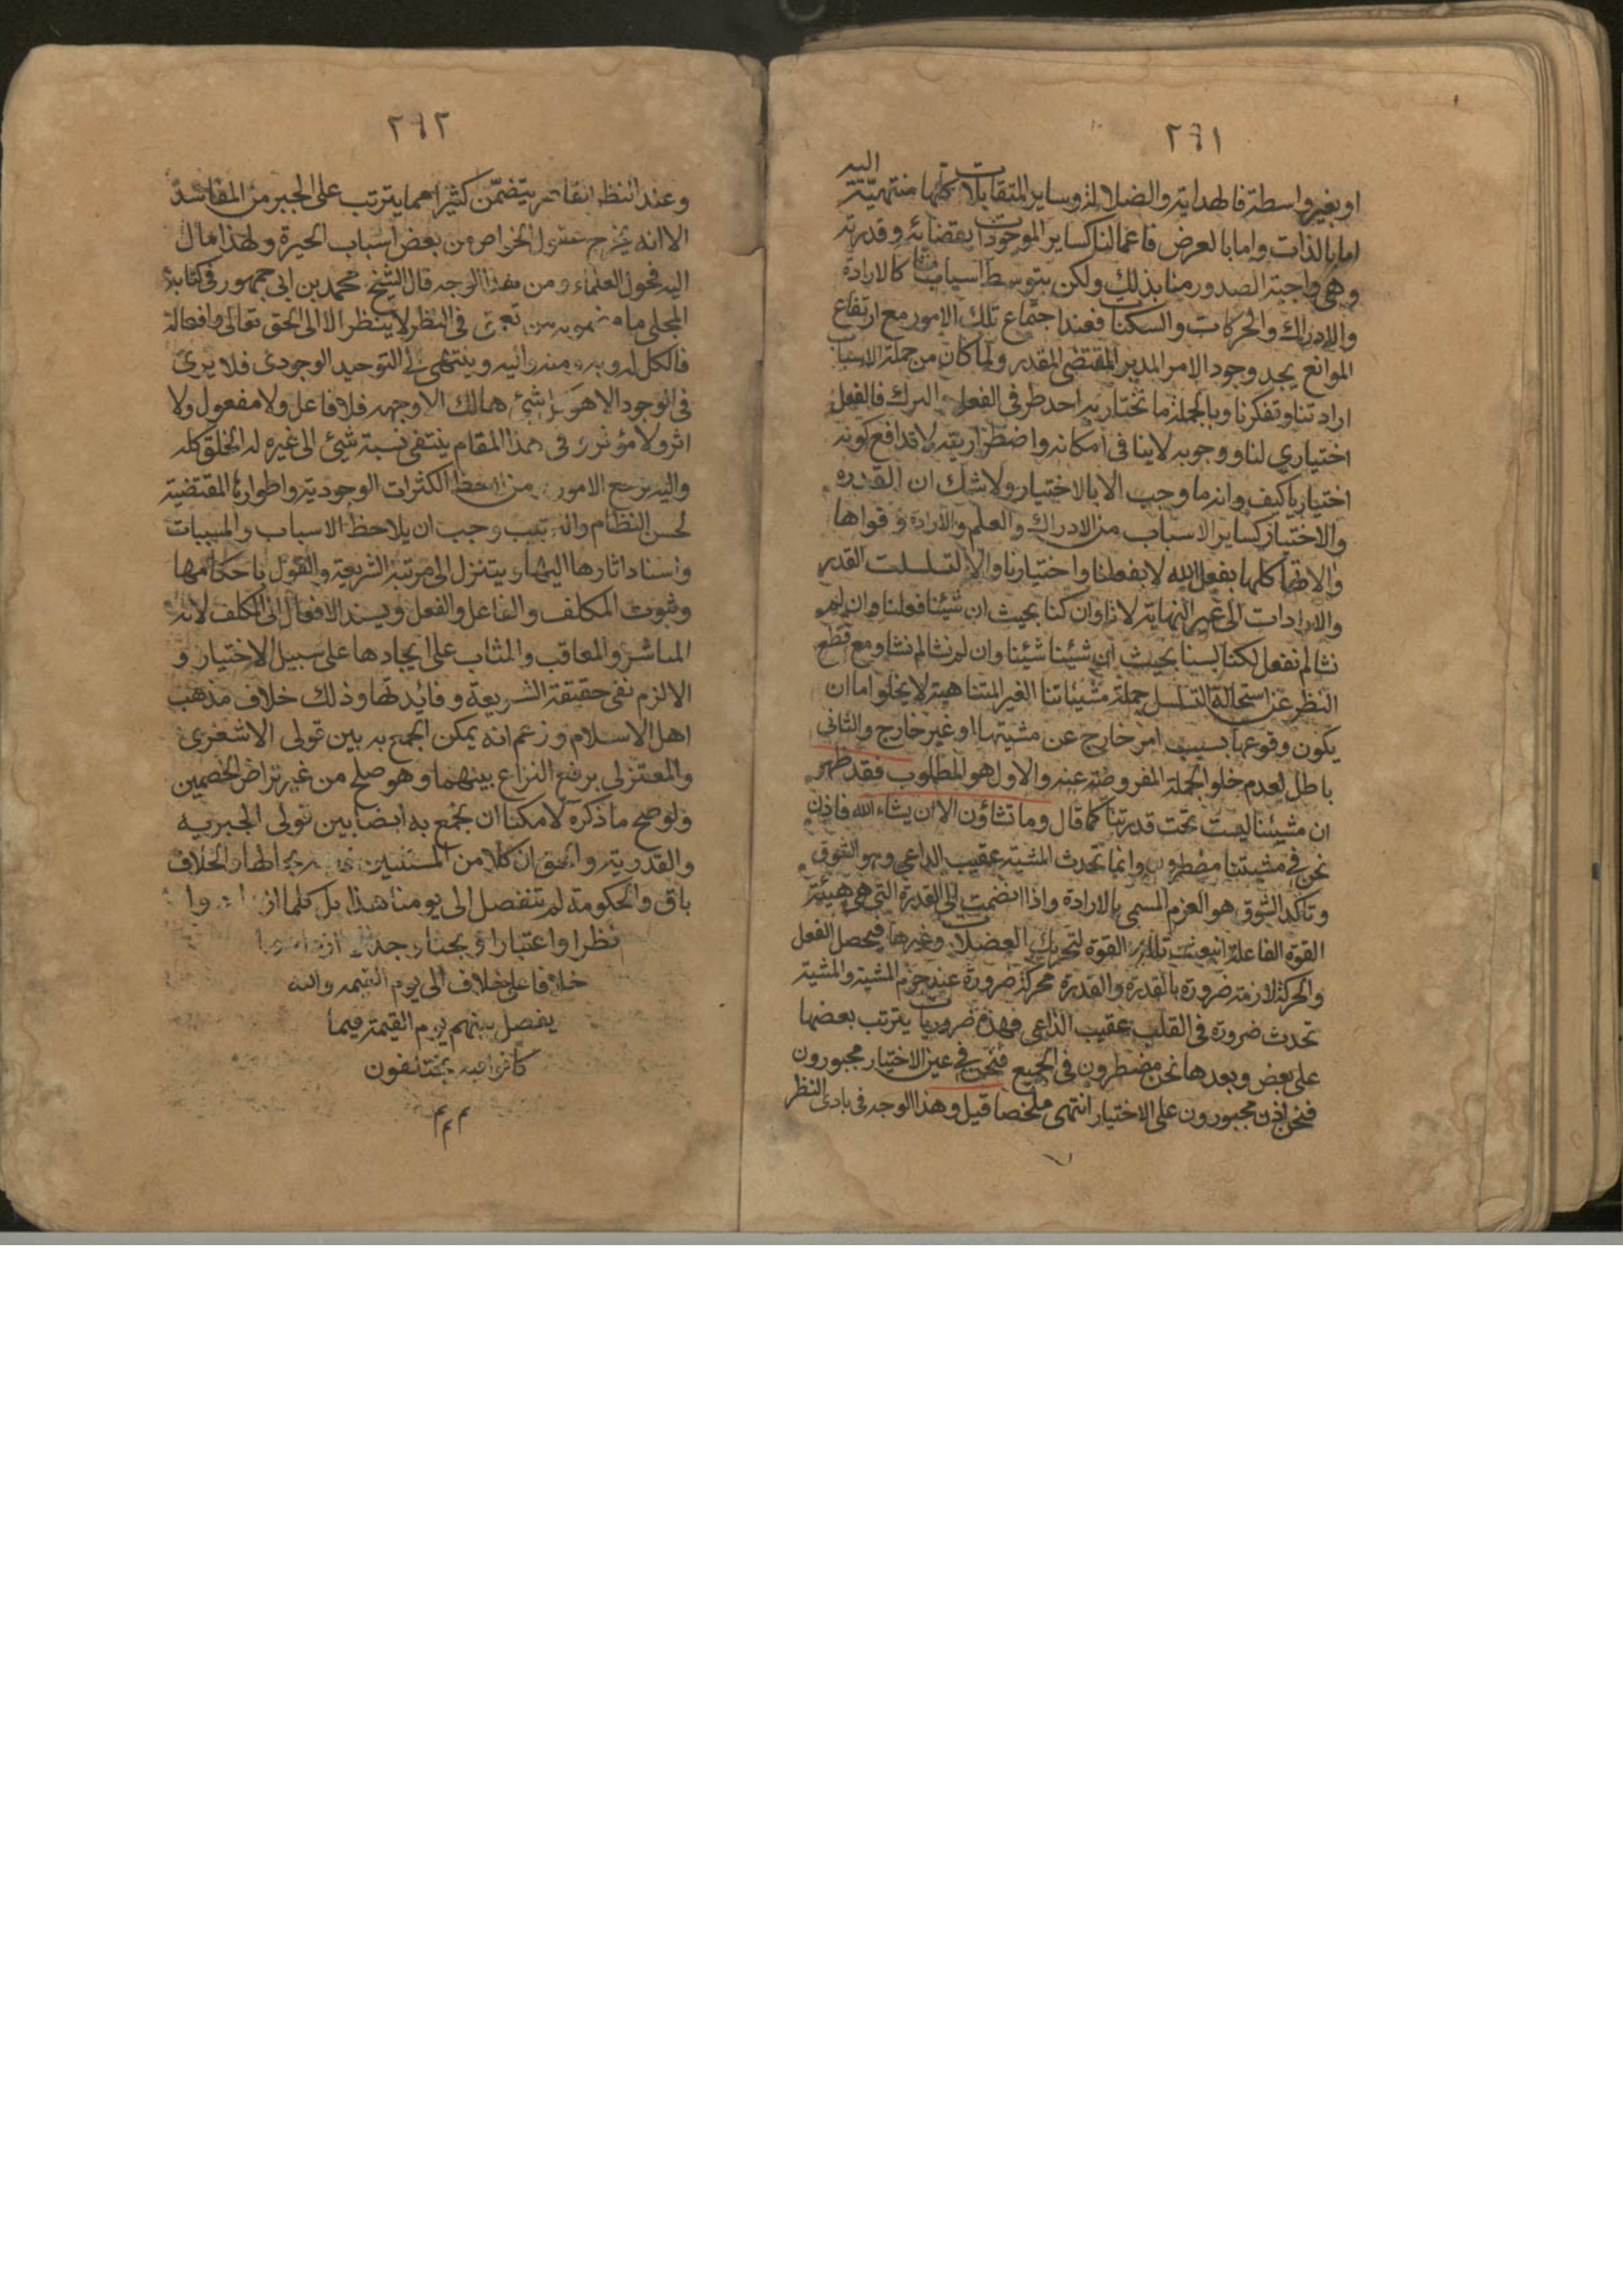 ٢٦١
اليه
او بغير واسطة فالهداية والضلالة وساير المتقابلات كلها منتهيّة
اما بالذات واما بالعرض فاعمالنا كساير الموجودات بقضائه وقدرته
وهى واجبة الصدور منا بذلك ولكن بتوسط اسباب منا كالارادة
والادراك والحركات والسكنات فعند اجتماع تلك الامور مع ارتفاع
الموانع يجد وجود الامر المدبر المقتضى المقدر ولما كان من جملة الاسباب
ارادتنا وتفكرنا وبالجملة ما نختار به احد طرفى الفعل والترك فالفعل
اختياري لنا ووجوبه لا ينافى امكانه واضطراريته لا تدافع كونه
اختياريا كيف وانه ما وجب الا بالاختيار ولا شك ان القدره
والاختيار كساير الاسباب من الادراك والعلم والارادة وقواها
والاتها كلها بفعل الله لا بفعلنا واختيارنا والا لتسلسلت القدر
والارادات الى غير النهاية لانا وان كنا بحيث ان شئنا فعلنا وان لم
نشا لم نفعل لكنا لسنا بحيث ان شئنا شئنا وان لم نشا لم نشا ومع قطع
النظر عن استحالة التسلسل جملة مشيئاتنا الغير المتناهية لا يخلو اما ان
يكون وقوعها بسبب امر خارج عن مشيتها او غير خارج والثانى
باطل لعدم خلو الجملة المفروضة عنه والاول هو المطلوب فقد ظهر
ان مشيئنا ليست تحت قدرتنا كما قال وما تشاؤن الا ان يشاء الله فاذن
نحن في مشيتنا مضطرون وانما تحدث المشية عقيب الداعي وهو الشوق
وتاكد الشوق هو العزم المسمى بالارادة واذا انضمت الى القدرة التى هى هيئة
القوة الفاعلة انبعثت تلك القوة لتحريك العضلات وغيرها فيحصل الفعل
والحركة لازمة ضرورة بالقدرة والقدرة محركة ضرورة عند جزم المشية والمشية
تحدث ضرورة فى القلب عقيب الداعى فهذه ضروريات يترتب بعضها
على بعض وبعدها نحن مضطرون فى الجميع فنحن في عين الاختيار مجبورون
فنحن اذن مجبورون على الاختيار انتهى ملخصا قيل وهذا الوجه فى بادى النظر
٢٦٢
وعند النظر يتضمّن كثيرا مما يترتب على الجبر من المفاسد
الا انه يخرج عقول الخواص من بعض اسباب الحيرة ولهذا مال
اليه فحول العلماء ومن هذا الوجه قال الشيخ محمد بن ابى جمهور فى كتابه
المجلى ما فى النظر لا ينظر الا الى الحق تعالى وافعاله
فالكل له وبه ومنه واليه وينتهى الى التوحيد الوجودى فلا يرى
فى الوجود الا هو كل شئ هالك الا وجهه فلا فاعل ولا مفعول ولا
اثر ولا مؤثر وفى هذا المقام ينتفى نسبة شئ الى غيره له الخلق كله
واليه يرجع الامور ومن لاحظ الكثرات الوجودية واطوارها المقتضية
لحسن النظام والترتيب وجب ان يلاحظ الاسباب والمسببات
واسناد اثارها اليها ويتنزل الى مرتبة الشريعة والقول باحكامها
وثبوت المكلف والفاعل والفعل ويسند الافعال الى المكلف لانه
المباشر والمعاقب والمثاب على ايجادها على سبيل الاختيار و
الا لزم نفى حقيقة الشريعة وفائدتها وذلك خلاف مذهب
اهل الاسلام وزعم انه يمكن الجمع به بين قولى الاشعرى
والمعتزلي برفع النزاع بينهما وهو صلح من غير تراض الخصمين
ولو صح ما ذكره لامكننا ان نجمع به ايضا بين قولى الجبريه
والقدرية والحق ان كلا من اظهار الخلاف
باق والحكومة لم تنفصل الى يومنا هذا بل كلما
نظرا واعتبارا وبحثا وجدلا
خلافا على خلاف الى يوم القيمه والله
يفصل بينهم يوم القيمة فيما
كانوا فيه يختلفون
م م م